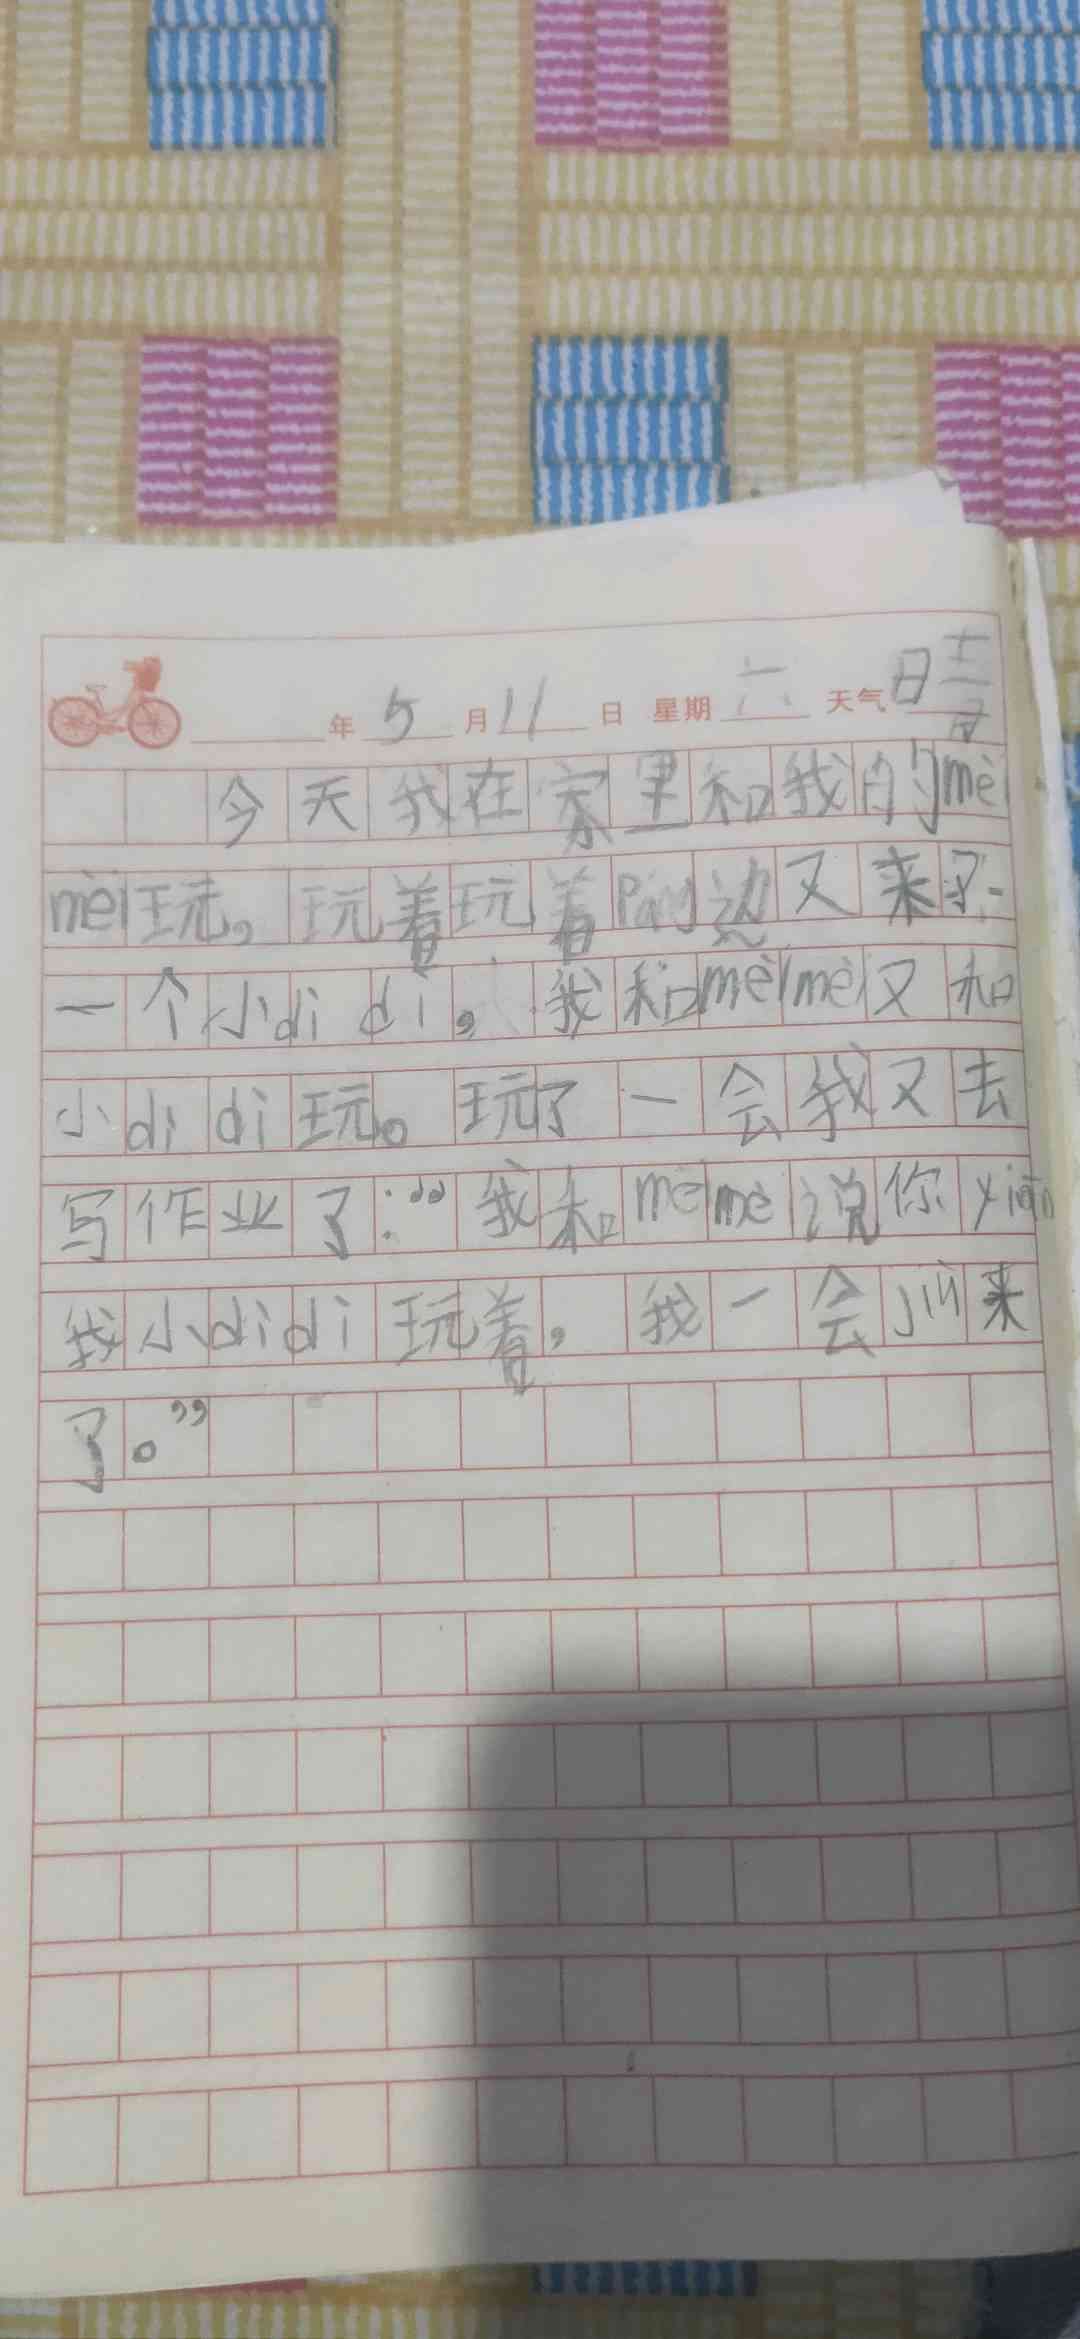 年 5 月 11 日 星期 六 天气 晴
今天我在家里和我的mèi
mèi玩，玩着玩着páng边又来了
一个小dì dì，我和mèimèi又和
小dìdì玩。玩了一会我又去
写作业了：“我和mèimèi说你
我小dìdì玩着，我一会jiù来
了。”